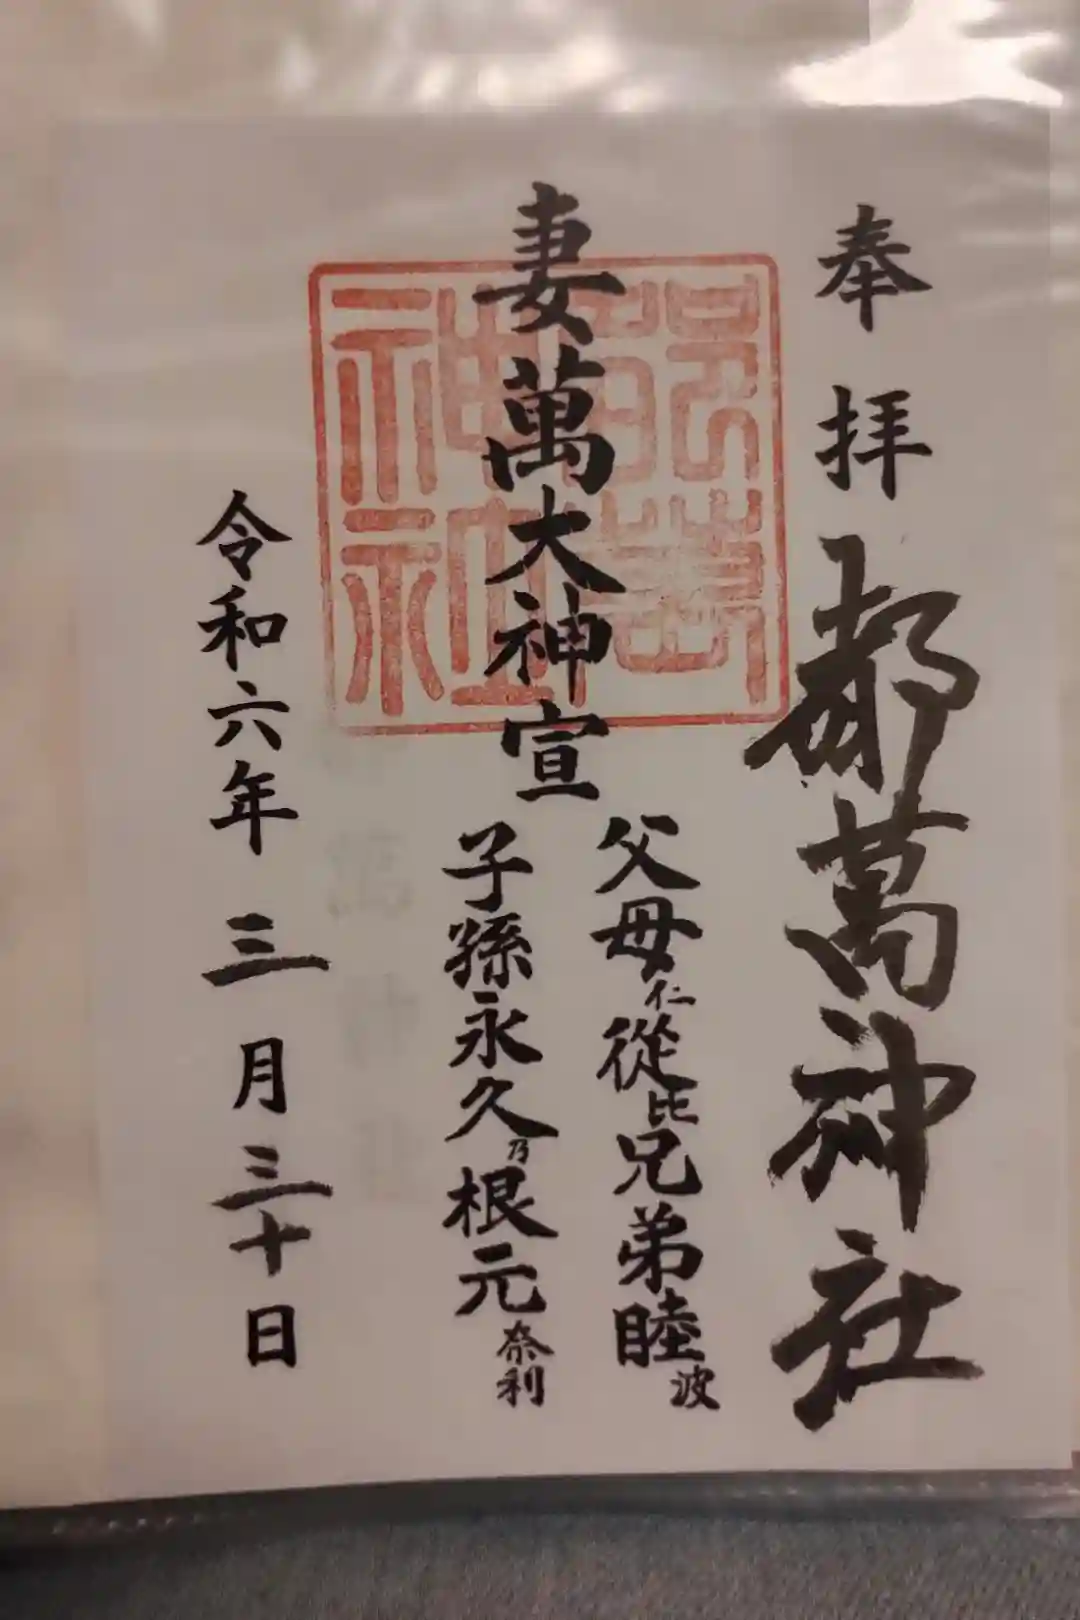 奉拝 都萬神社
妻萬大神宣
父母仁從比兄弟睦波
子孫永久乃根元奈利
令和六年三月三十日
都萬
神社